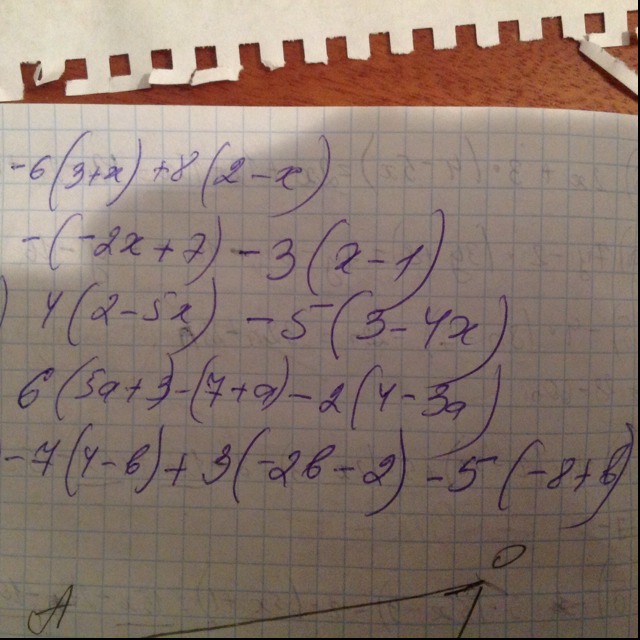 -6(3+x)+8(2-x)
-(-2x+7)-3(x-1)
) 4(2-5x)-5(3-4x)
6(5a+3)-(7+a)-2(4-3a)
)-7(4-b)+3(-2b-2)-5(-8+b)
A O